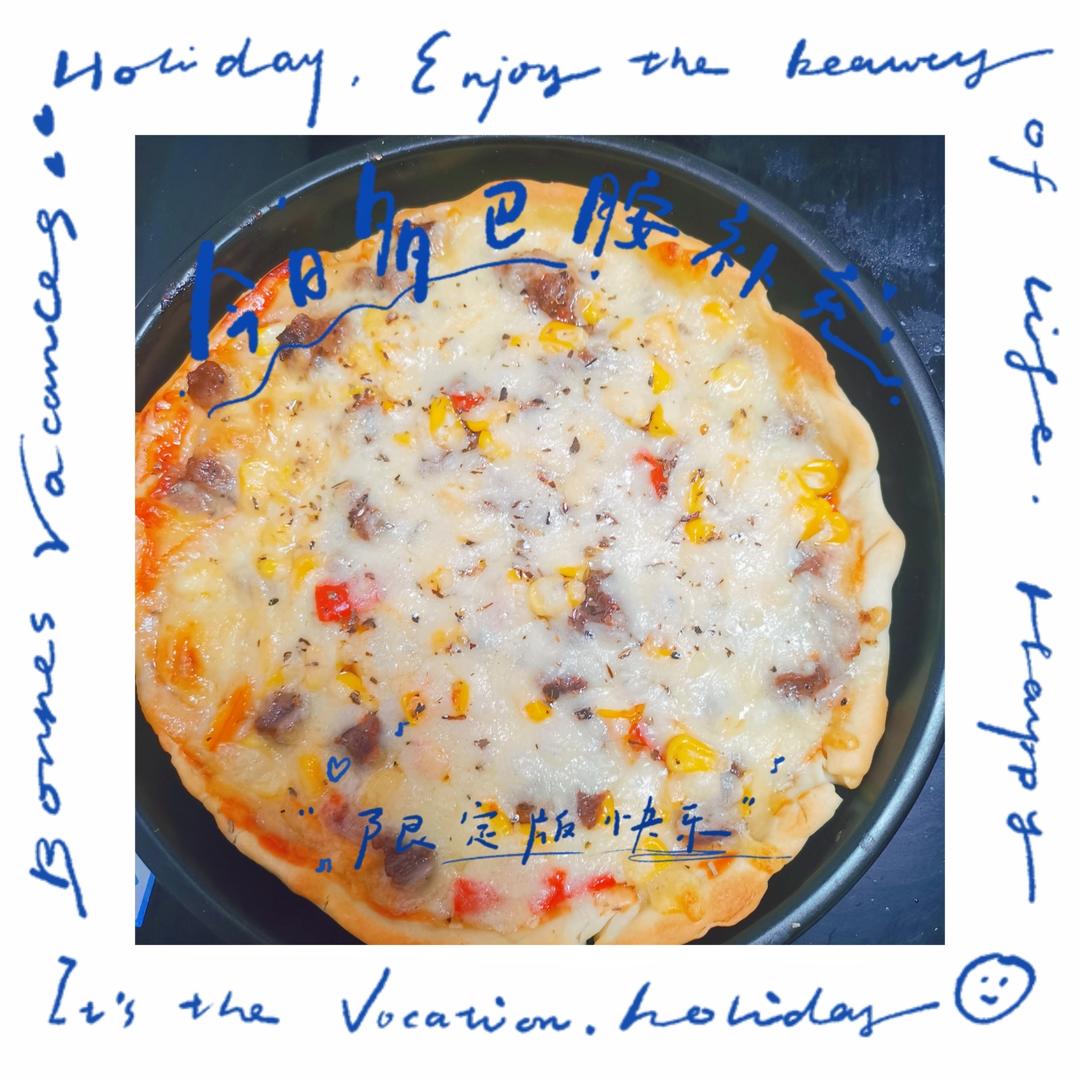 Holiday. Enjoy the beauty
of life. Happy
It's the Vocation. holiday
Bonnes Vacances
今日多巴胺补充
"限定版快乐"